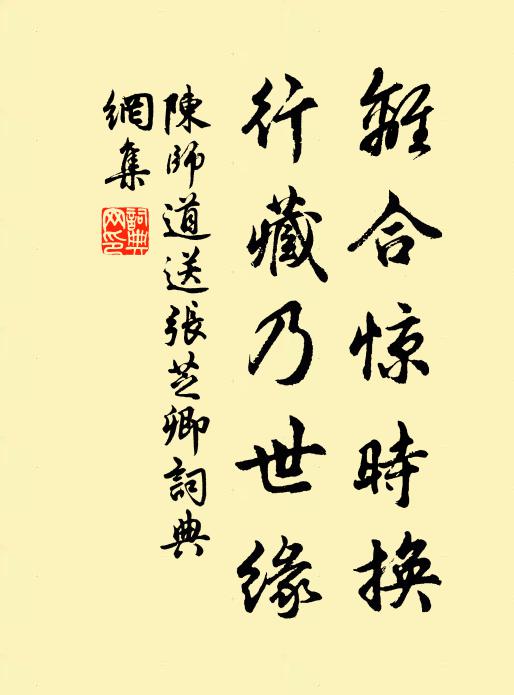 離合惊時換
行藏乃世缘
陳師道送張芝卿詞典
網集
詞典網印